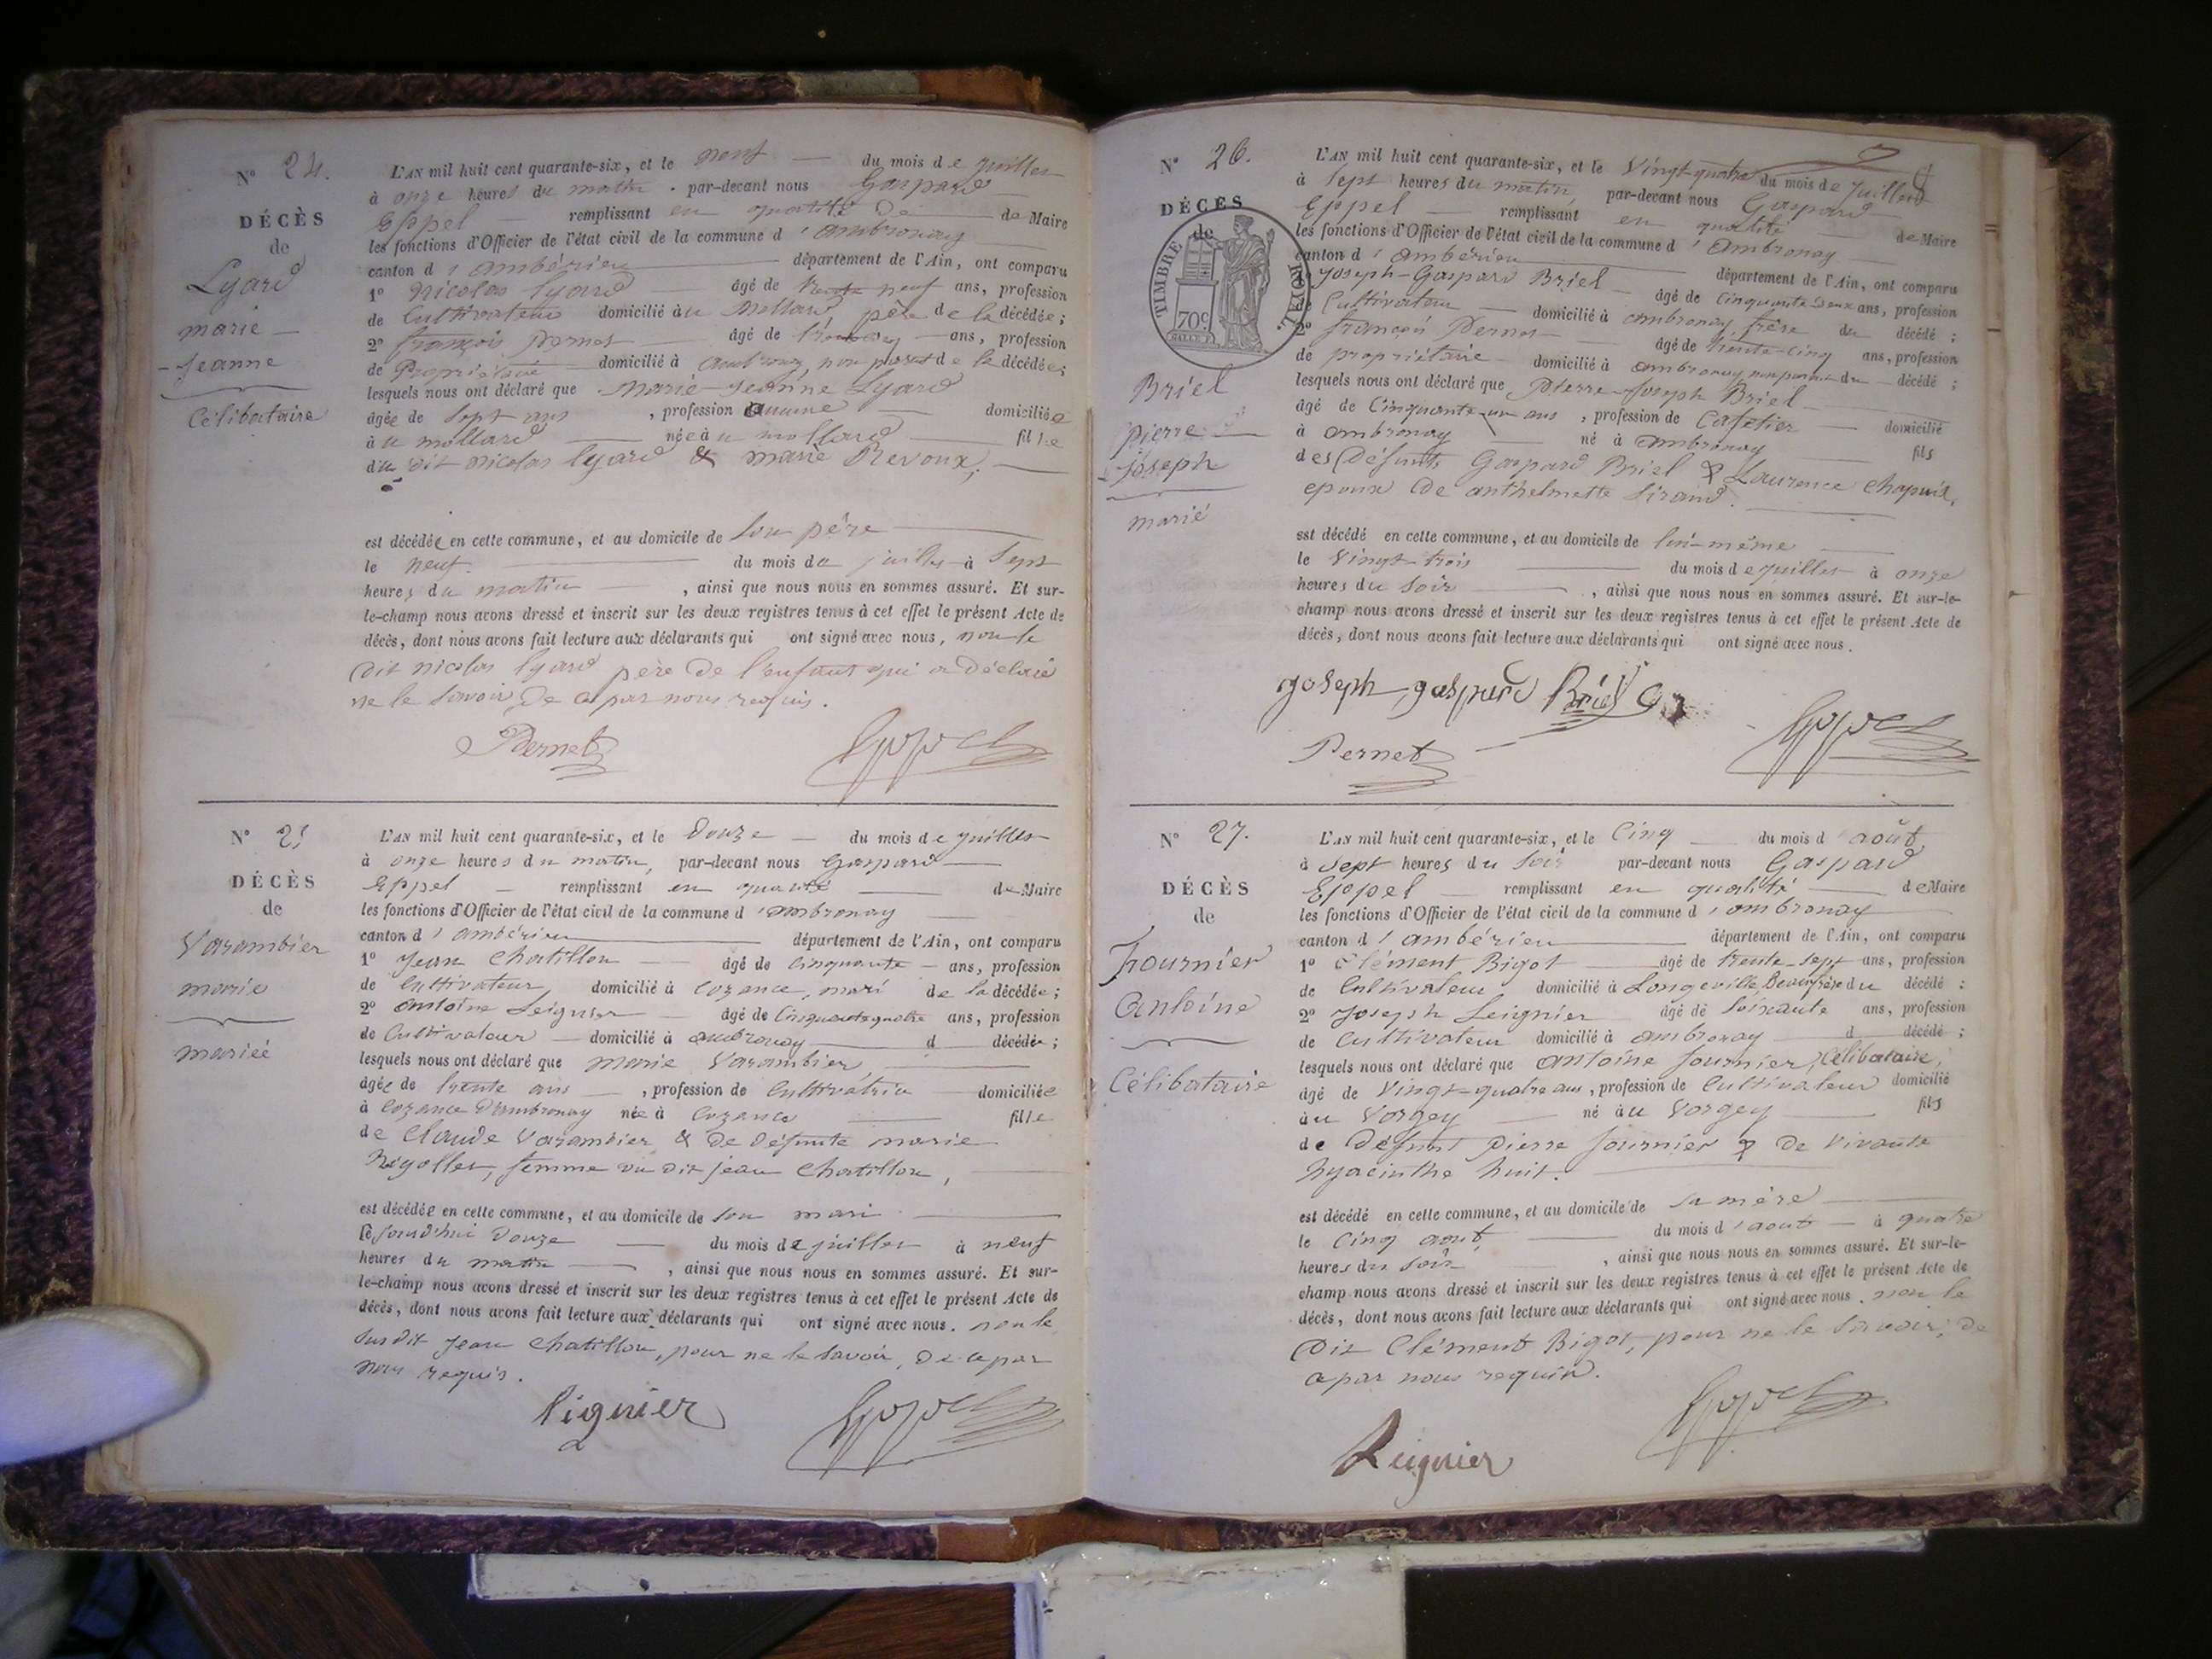 N° 24.
DÉCÈS
de
Lyard
marie
Jeanne
Célibataire
L'AN mil huit cent quarante-six, et le neuf du mois de juillet
à onze heures du matin . par-devant nous Gaspard
Eppel remplissant en qualité de de Maire
les fonctions d'Officier de l'état civil de la commune d'ambronay
canton d'ambérieu département de l'Ain, ont comparu
1° Nicolas lyard âgé de trente neuf ans, profession
de Cultivateur domicilié au Mollard, père de la décédée;
2° françois Pernet âgé de ans, profession
de Propriétaire domicilié à ambronay, non parent de la décédée;
lesquels nous ont déclaré que Marie-Jeanne Lyard
âgée de sept ans , profession aucune domiciliée
au mollard née au mollard fille
du dit nicolas lyard & marie Revoux,
est décédée en cette commune, et au domicile de son père
le neuf. du mois de juillet à Sept
heures du matin , ainsi que nous nous en sommes assuré. Et sur-
le-champ nous avons dressé et inscrit sur les deux registres tenus à cet effet le présent Acte de
décès, dont nous avons fait lecture aux déclarants qui ont signé avec nous, non le
dit nicolas lyard père de l'enfant qui a déclaré
ne le savoir, de ce par nous requis.
Pernet Eppel
N° 25
DÉCÈS
de
Varambier
marie
mariée
L'AN mil huit cent quarante-six, et le Douze du mois de juillet
à onze heures du matin, par-devant nous Gaspard
Eppel remplissant en qualité de Maire
les fonctions d'Officier de l'état civil de la commune d'ambronay
canton d'ambérieu département de l'Ain, ont comparu
1° Jean Chatillon âgé de cinquante ans, profession
de Cultivateur domicilié à Cozance, mari de la décédée;
2° antoine Leignier âgé de Cinquante quatre ans, profession
de Cultivateur domicilié à ambronay d décédée;
lesquels nous ont déclaré que Marie Varambier,
âgée de trente ans , profession de Cultivatrice domiciliée
à Cozance d'ambronay née à Cozance fille
de Claude Varambier & de défunte marie
Rigollet, femme du dit jean Chatillon,
est décédée en cette commune, et au domicile de son mari
le jourd'hui Douze du mois de juillet à neuf
heures du matin , ainsi que nous nous en sommes assuré. Et sur-
le-champ nous avons dressé et inscrit sur les deux registres tenus à cet effet le présent Acte de
décès, dont nous avons fait lecture aux déclarants qui ont signé avec nous. non le
susdit Jean Chatillon, pour ne le savoir, de ce par
nous requis.
Lignier Eppel
N° 26.
DÉCÈS
de
TIMBRE ROYAL.
70c
Briel
pierre
joseph
marié
L'AN mil huit cent quarante-six, et le Vingt-quatre du mois de juillet
à Sept heures du matin, par-devant nous Gaspard
Eppel remplissant en qualité de Maire
les fonctions d'Officier de l'état civil de la commune d'ambronay
canton d'ambérieu département de l'Ain, ont comparu
Joseph-Gaspard Briel âgé de Cinquante deux ans, profession
de Cultivateur domicilié à ambronay, frère du décédé;
2° françois Pernet âgé de trente-cinq ans, profession
de propriétaire domicilié à ambronay non parent du décédé;
lesquels nous ont déclaré que Pierre-Joseph Briel
âgé de Cinquante-un ans , profession de Cafetier domicilié
à ambronay né à ambronay fils
des Défunts Gaspard Briel & Laurence Chapuis,
epoux de anthelmette Siraud.
est décédé en cette commune, et au domicile de lui-même
le Vingt-trois du mois de juillet à onze
heures du soir , ainsi que nous nous en sommes assuré. Et sur-le-
champ nous avons dressé et inscrit sur les deux registres tenus à cet effet le présent Acte de
décès, dont nous avons fait lecture aux déclarants qui ont signé avec nous.
joseph gaspard Briel
Pernet Eppel
N° 27.
DÉCÈS
de
Fournier
Antoine
Célibataire
L'AN mil huit cent quarante-six, et le Cinq du mois d'août
à Sept heures du soir par-devant nous Gaspard
Eppel remplissant en qualité de Maire
les fonctions d'Officier de l'état civil de la commune d'ambronay
canton d'ambérieu département de l'Ain, ont comparu
1° Clément Bigot âgé de trente-sept ans, profession
de Cultivateur domicilié à Longeville, Beaufrère du décédé;
2° Joseph Leignier âgé de soixante ans, profession
de Cultivateur domicilié à ambronay d décédé;
lesquels nous ont déclaré que antoine fournier, Célibataire,
âgé de Vingt-quatre ans, profession de Cultivateur domicilié
au Vorgey né au Vorgey fils
de Défunt pierre fournier & de vivante
hyacinthe huit.
est décédé en cette commune, et au domicile de sa mère
le Cinq aout du mois d'aout à quatre
heures du soir , ainsi que nous nous en sommes assuré. Et sur-le-
champ nous avons dressé et inscrit sur les deux registres tenus à cet effet le présent Acte de
décès, dont nous avons fait lecture aux déclarants qui ont signé avec nous. non le
Dit Clément Bigot, pour ne le savoir, de
ce par nous requis.
Leignier Eppel